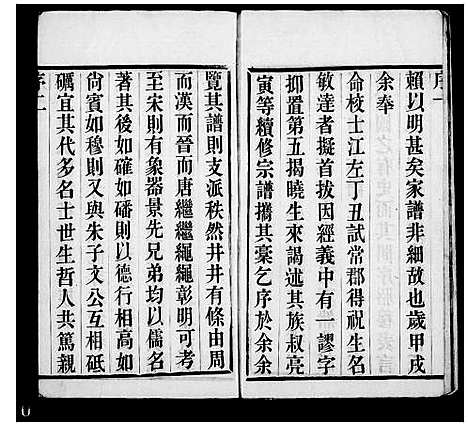 序一
賴以明甚矣家譜非細故也歲甲戌
余奉
命校士江左丁丑試常郡得祝生名
敏達者擬首拔因經義中有一謬字
抑置第五揭曉生來謁述其族叔亮
寅等續修宗譜攜其稾乞序於余余
覽其譜則支派秩然井井有條由周
而漢而晉而唐繼繼繩繩彰明可考
至宋則有象器景先兄弟均以儒名
著其後如確如磻則以德行相高如
尙賓如穆則又與朱子文公互相砥
礪宜其代多名士世生哲人共篤親
序二